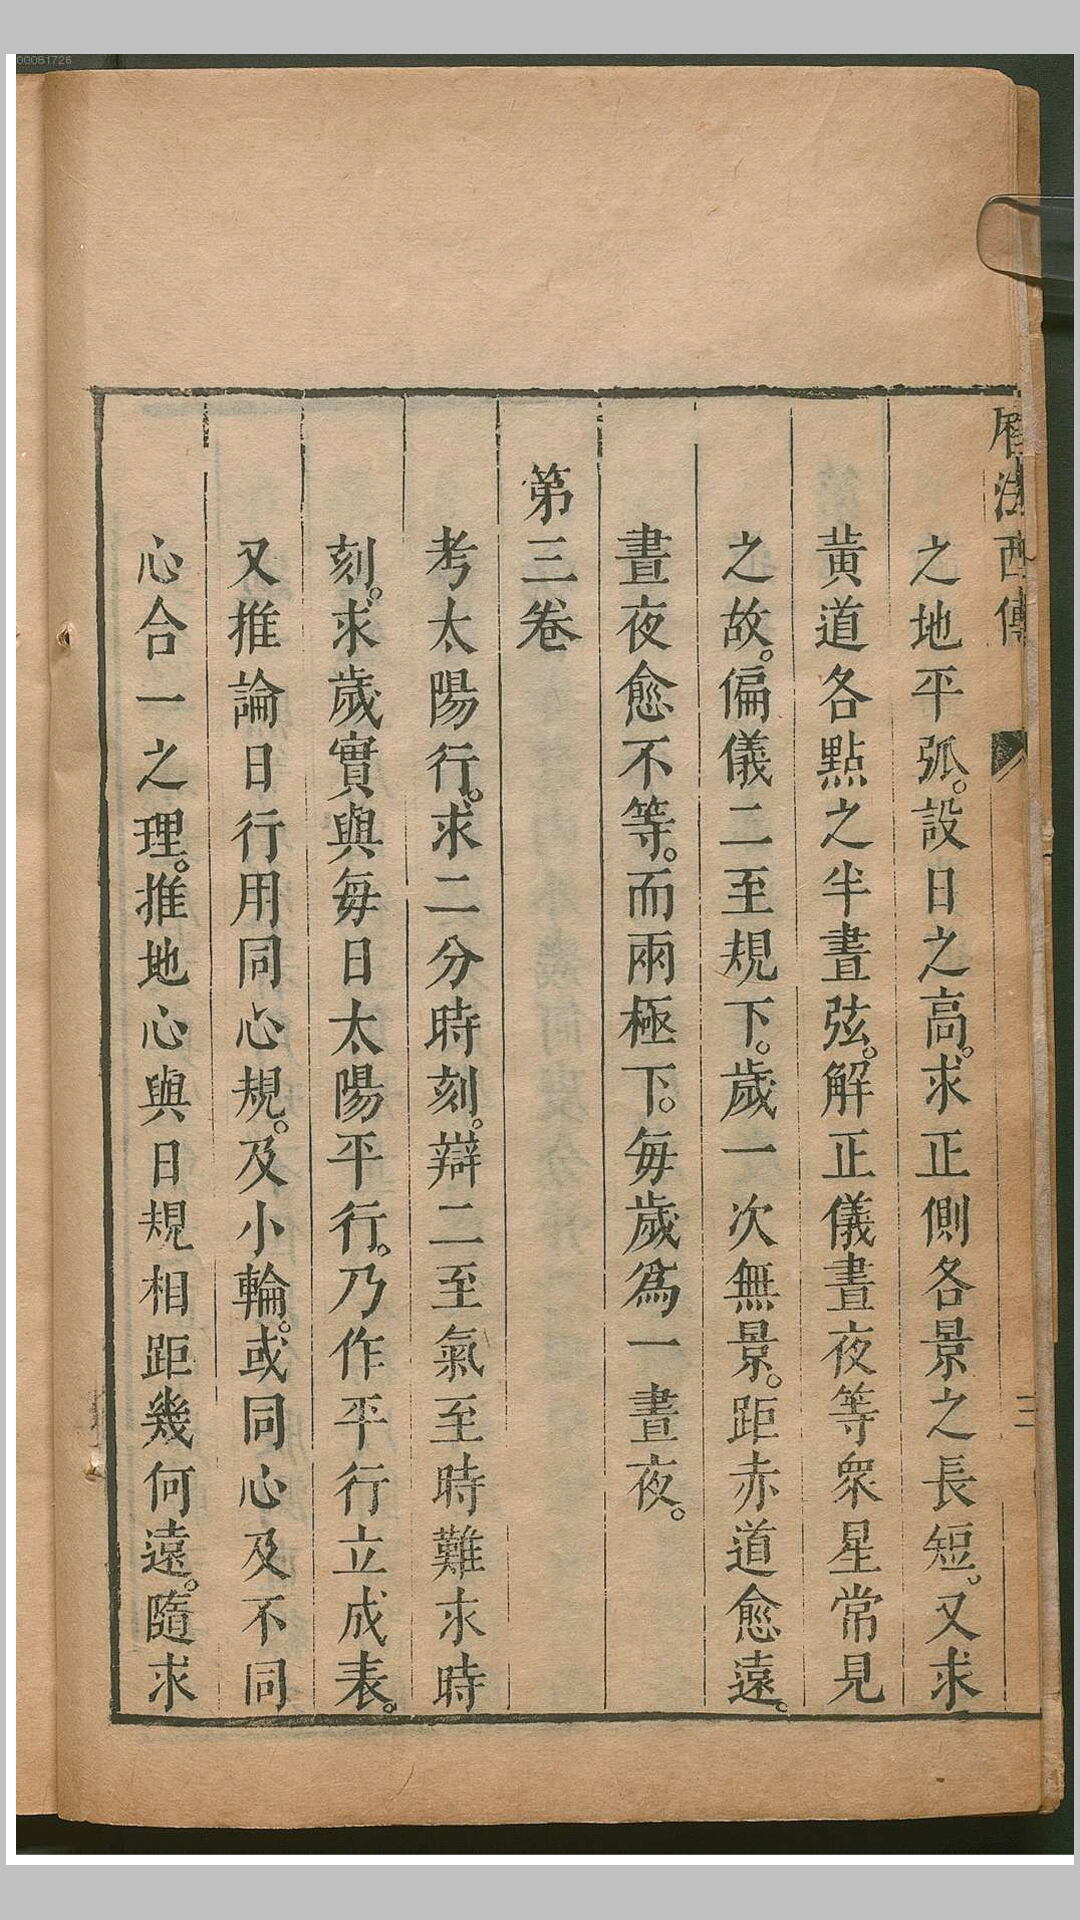 00081726
曆法西傳
之地平弧。設日之高。求正側各景之長短。又求
黃道各點之半晝弦。解正儀晝夜等衆星常見
之故。偏儀二至規下。歲一次無景。距赤道愈遠。
晝夜愈不等。而兩極下。每歲爲一晝夜。
第三卷
考太陽行。求二分時刻。辯二至氣至時難求時
刻。求歲實與每日太陽平行。乃作平行立成表。
又推論日行用同心規。及小輪。或同心及不同
心合一之理。推地心與日規相距幾何遠。隨求